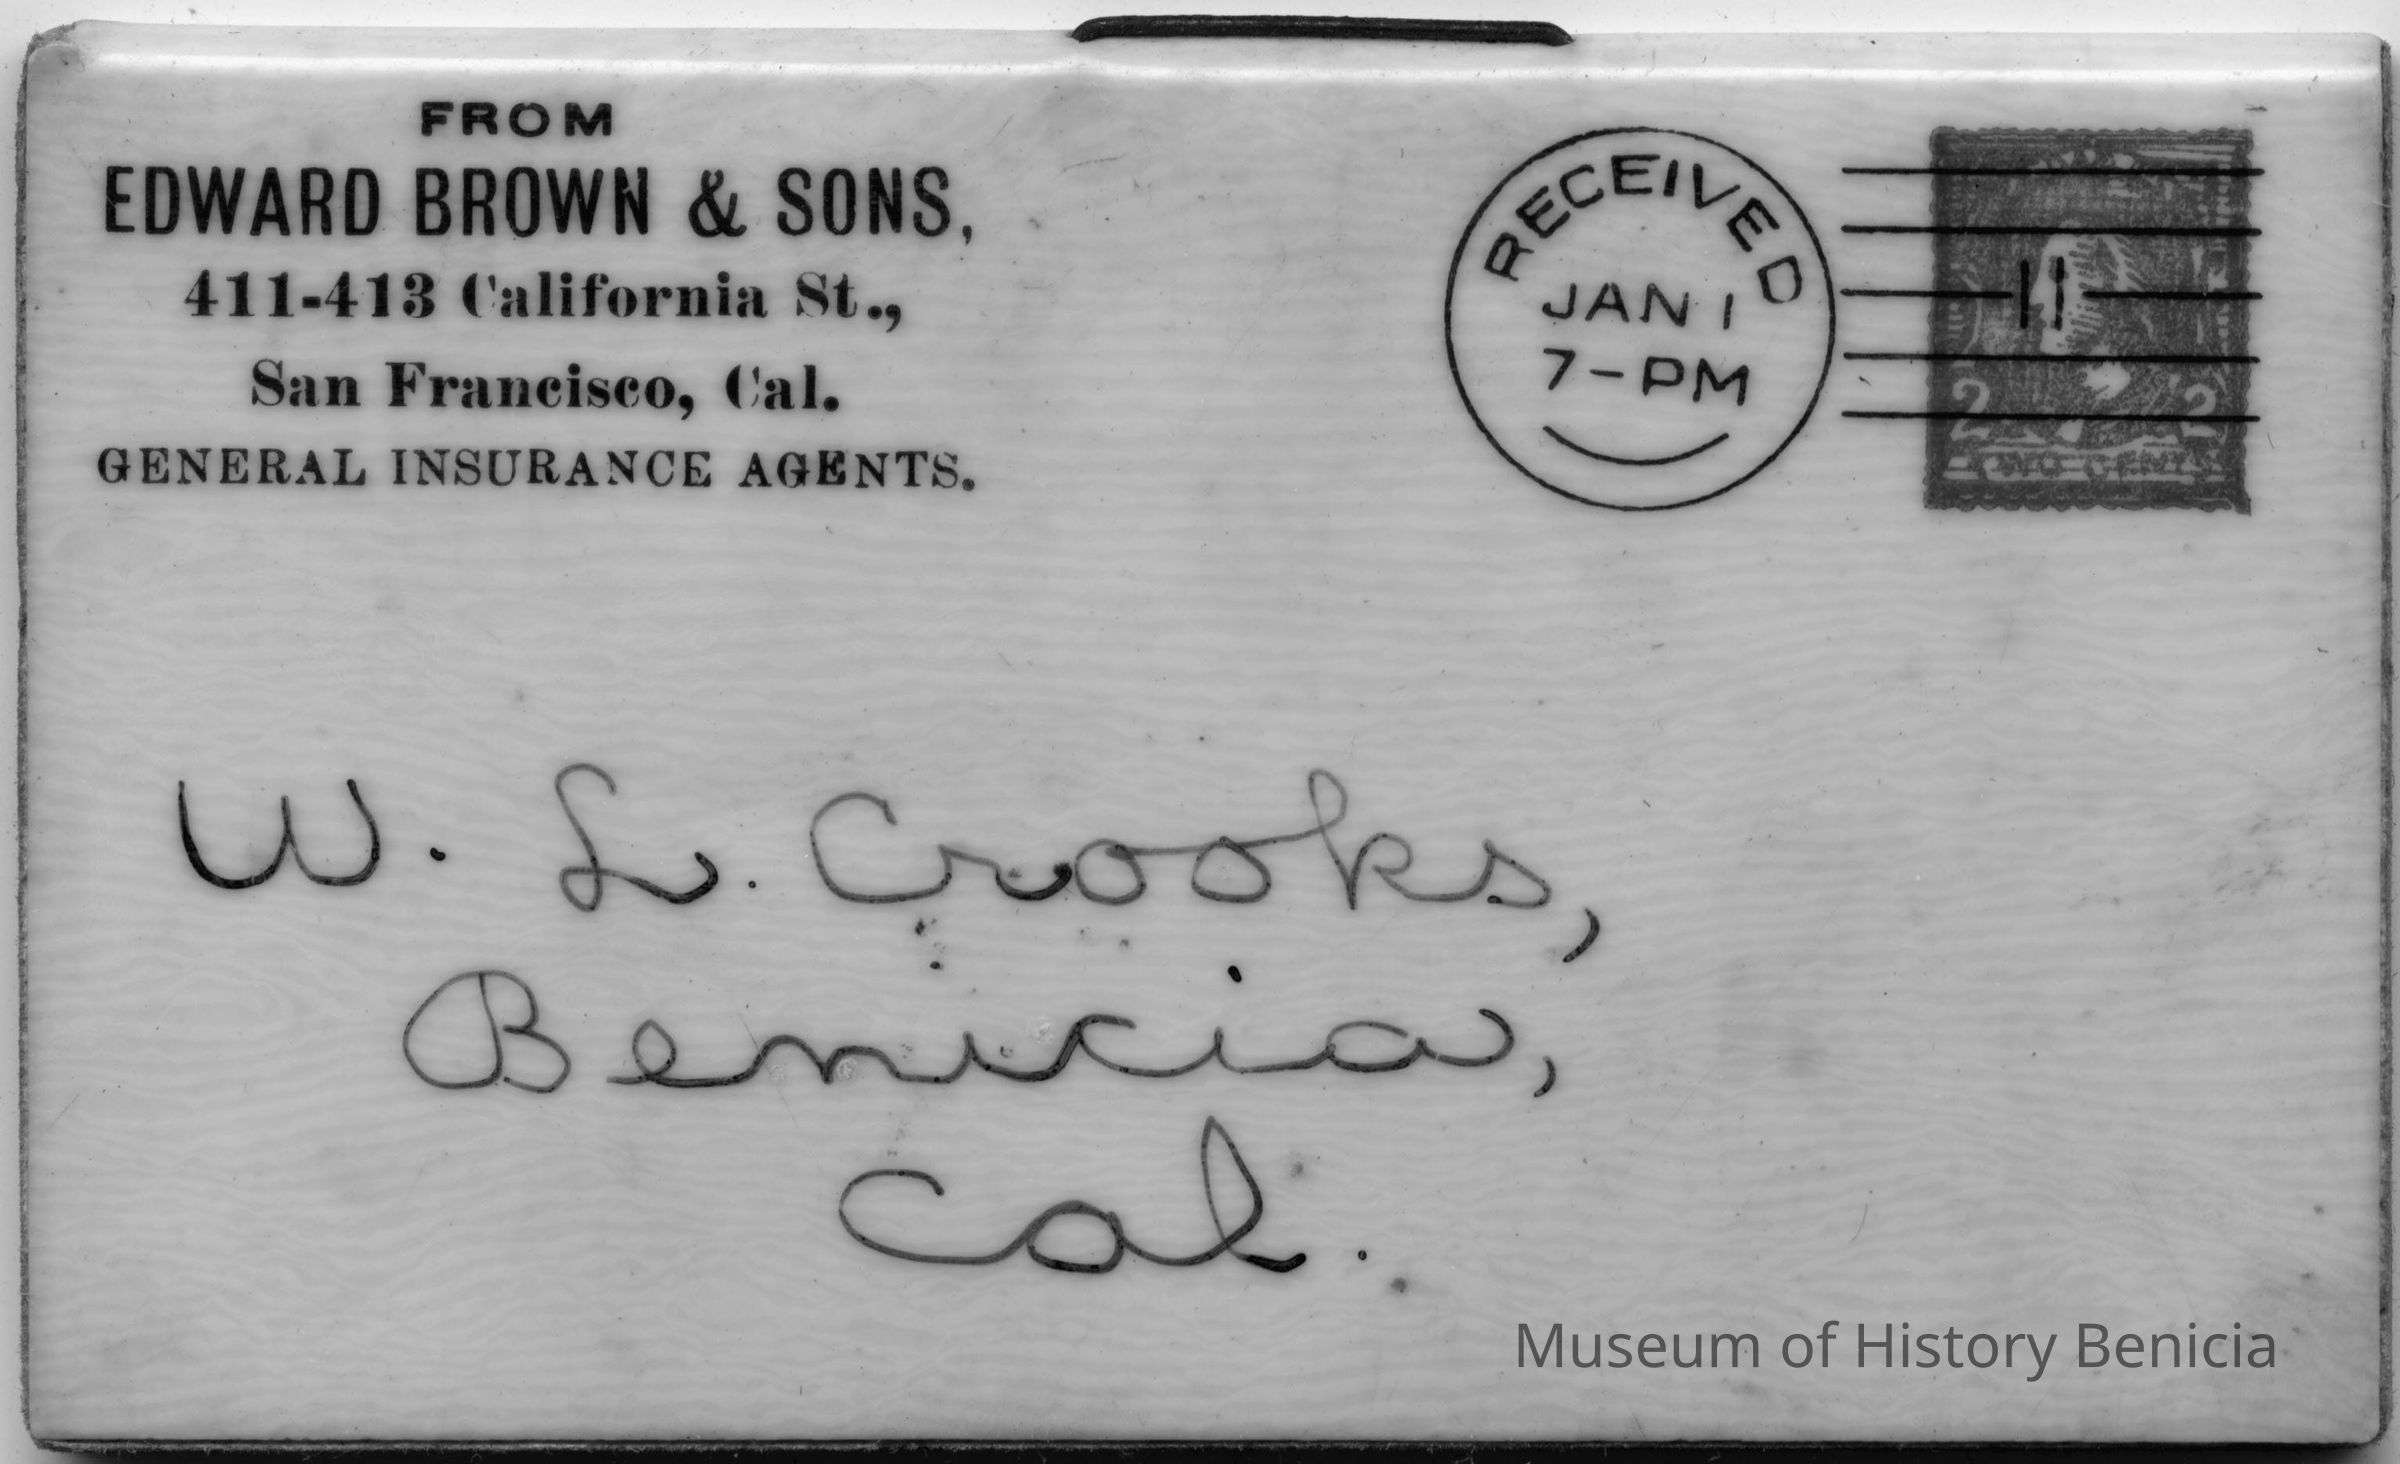 FROM
EDWARD BROWN & SONS,
411-413 California St.,
San Francisco, Cal.
GENERAL INSURANCE AGENTS.
RECEIVED
JAN 1
7-PM
11
2 2
TWO CENTS
W. L. Crooks,
Benicia,
Cal.
Museum of History Benicia